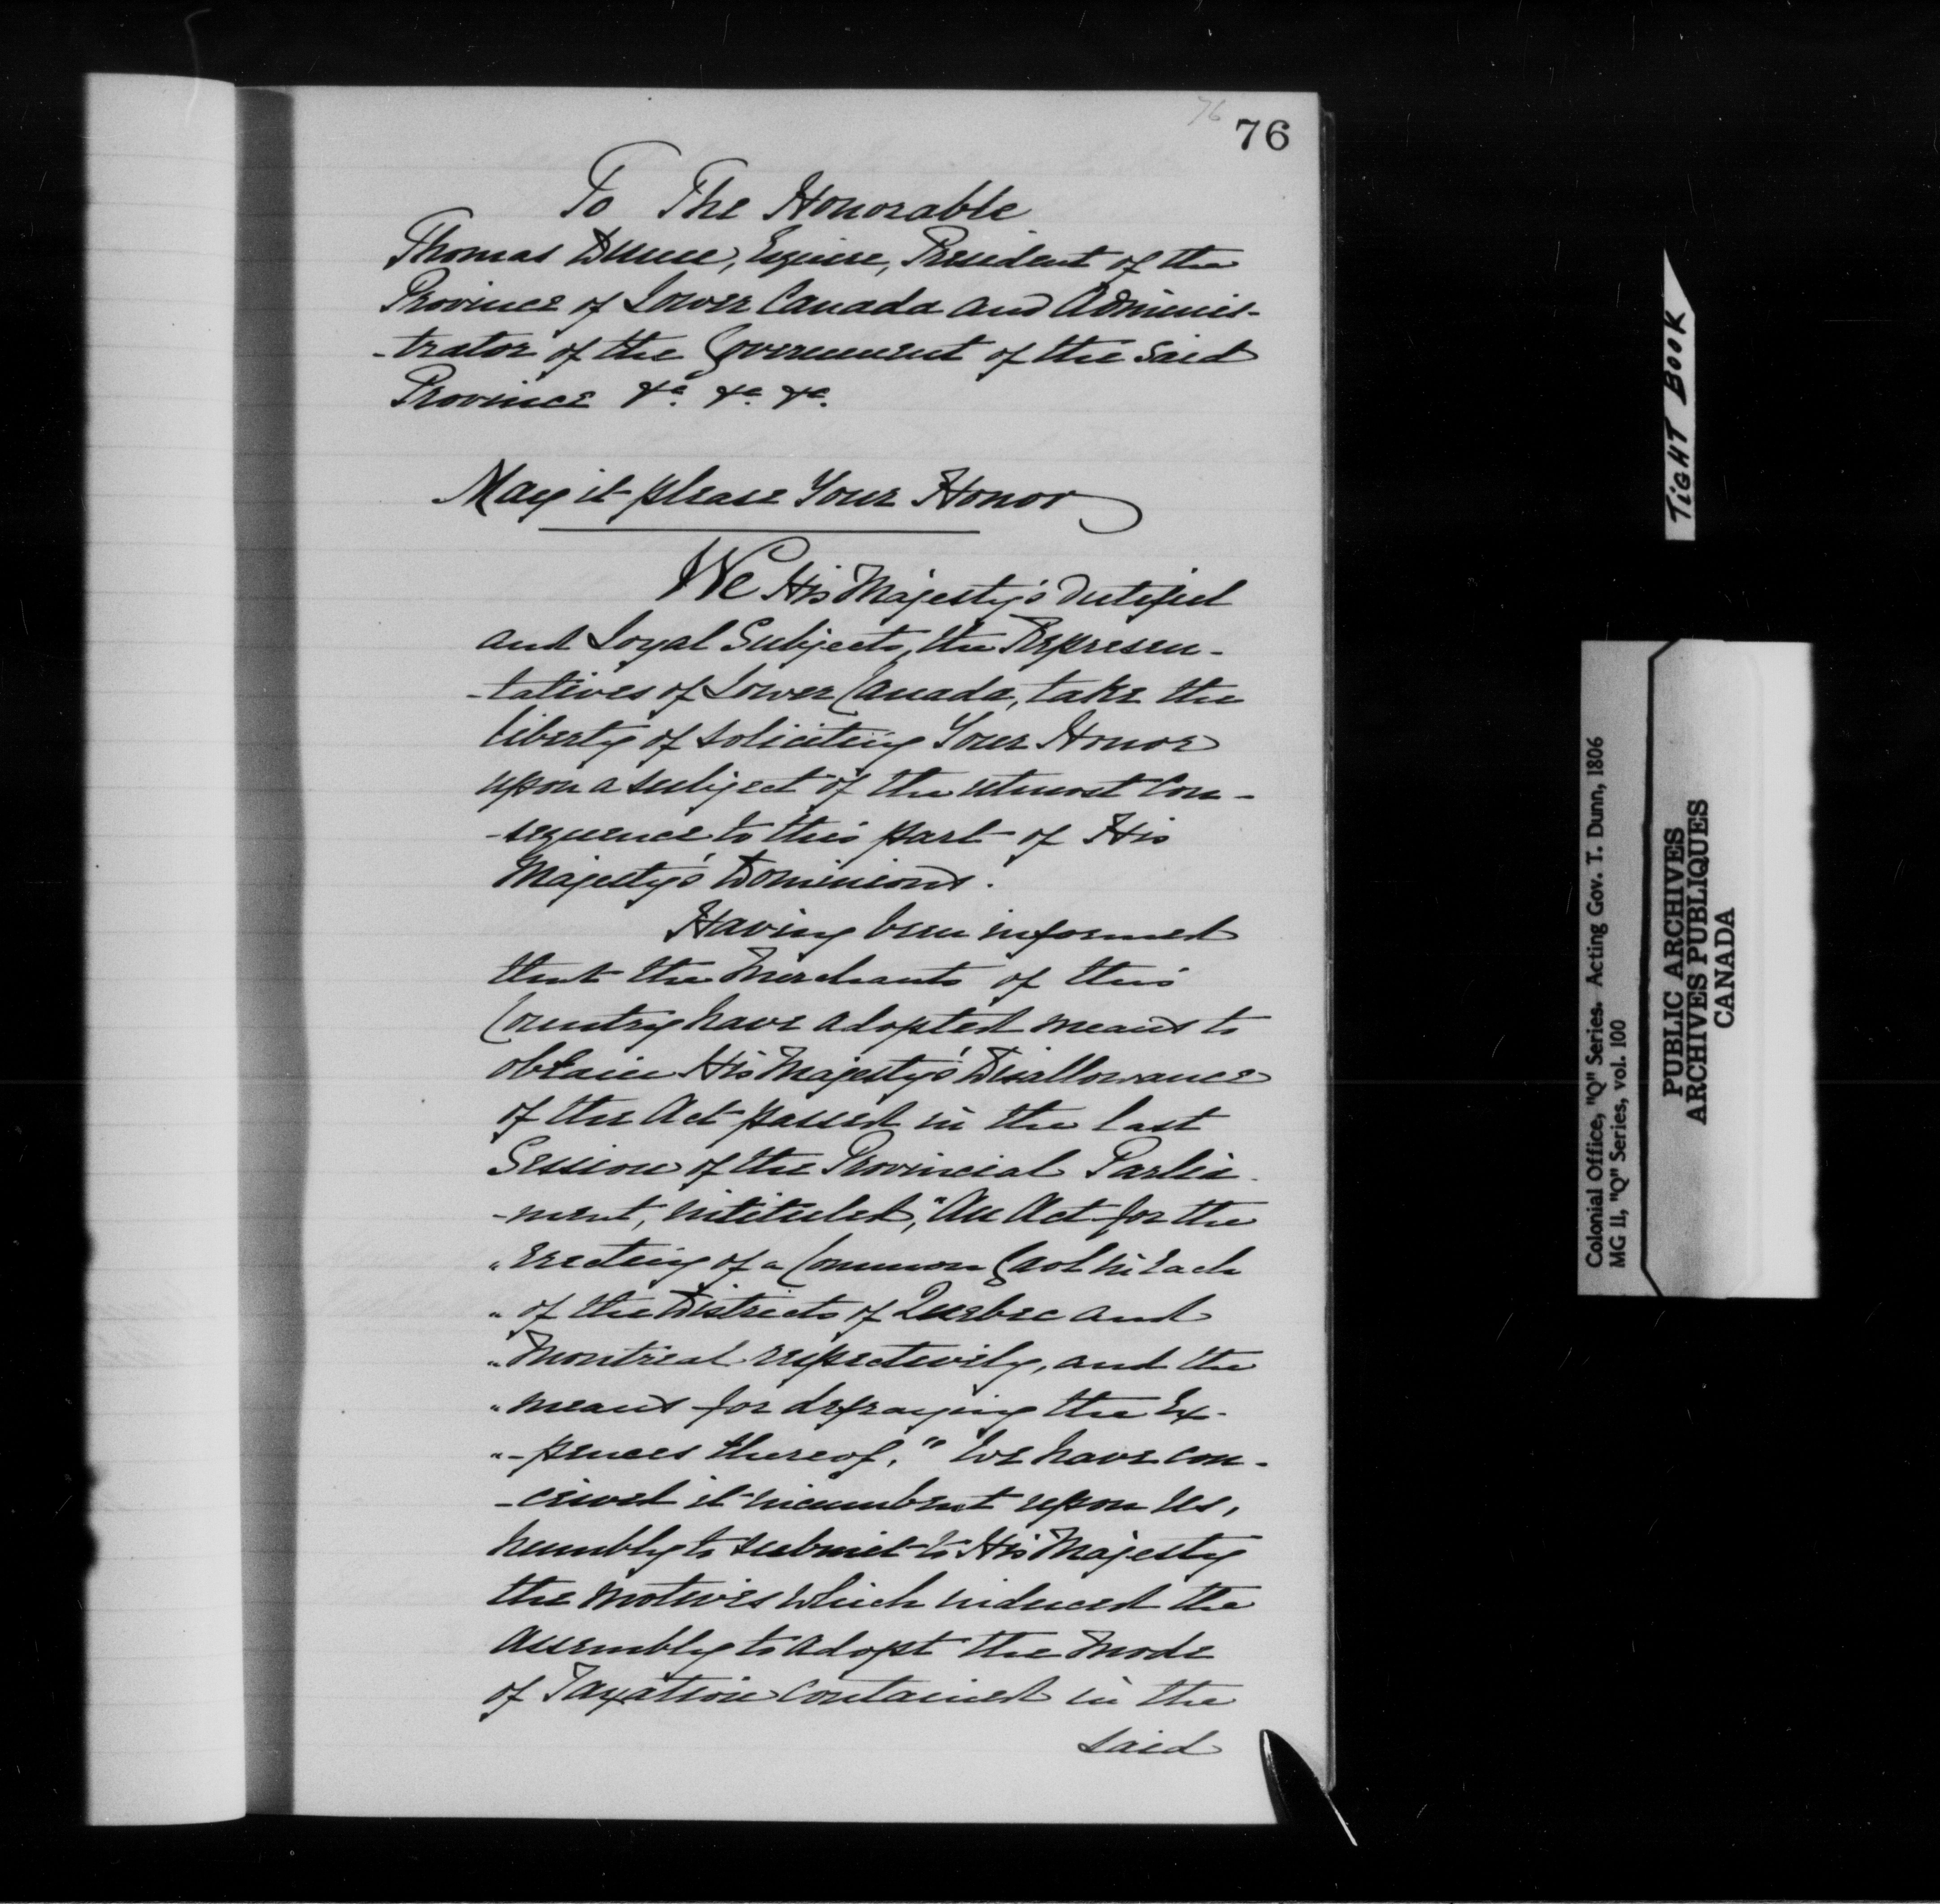 76
76
To The Honorable
Thomas Dunn, Esquire, President of the
Province of Lower Canada and Adminis-
-trator of the Government of the said
Province &c. &c. &c.
May it please Your Honor
We His Majesty's dutiful
and Loyal Subjects, the Represen-
-tatives of Lower Canada, take the
liberty of soliciting Your Honor
upon a subject of the utmost Con-
-sequence to this part of His
Majesty's Dominions.
Having been informed
that the Merchants of this
Country have adopted means to
obtain His Majesty's Disallowance
of the Act passed in the last
Session of the Provincial Parlia-
-ment, intituled, "An Act for the
" erecting of a Common Gaol in each
" of the Districts of Quebec and
" Montreal respectively, and the
" means for defraying the Ex-
"-pences thereof." We have con-
-ceived it incumbent upon us,
humbly to submit to His Majesty
the motives which induced the
Assembly to adopt the Mode
of Taxation contained in the
said
TIGHT BOOK
Colonial Office, "Q" Series. Acting Gov. T. Dunn, 1806
MG 11, "Q" Series, vol. 100
PUBLIC ARCHIVES
ARCHIVES PUBLIQUES
CANADA